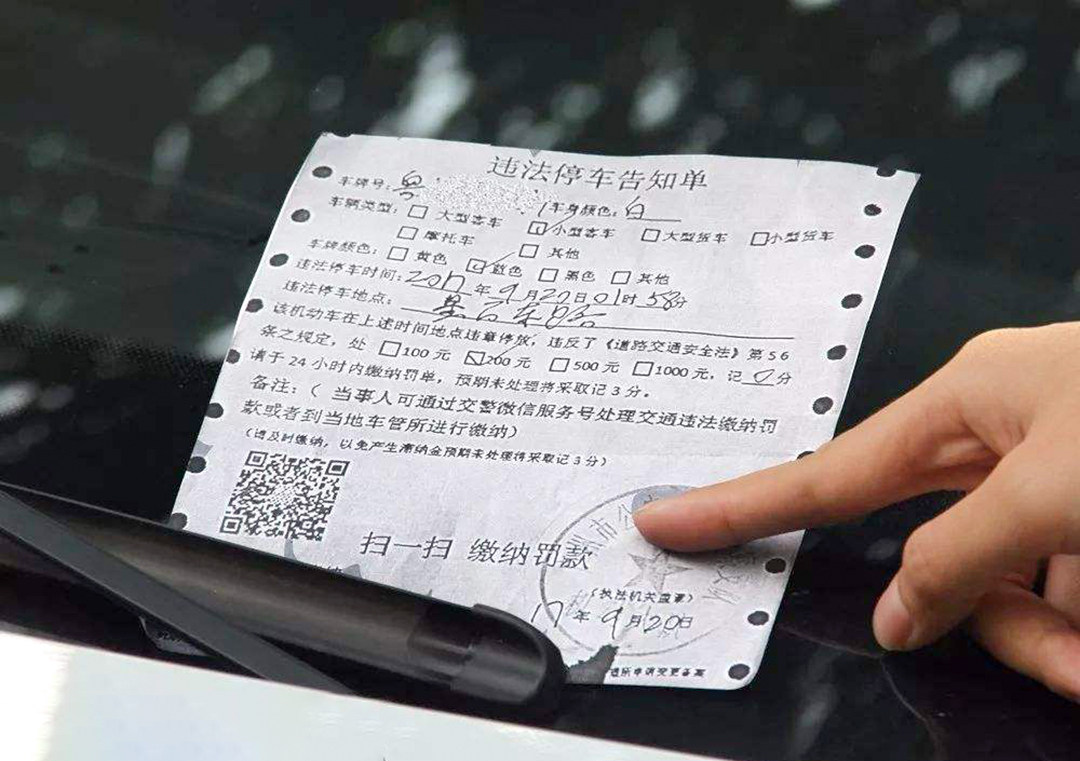 违法停车告知单
车牌号:粤 车身颜色:白
车辆类型:□ 大型客车 ☑小型客车 □大型货车 □小型货车
□ 摩托车 □ 其他
车牌颜色:□ 黄色 ☑蓝色 □ 黑色 □ 其他
违法停车时间:2017年9月20日01时58分
违法停车地点:景云东路
该机动车在上述时间地点违章停放,违反了《道路交通安全法》第56
条之规定,处 □100元 ☑200元 □500元 □1000元,记 0 分
请于24小时内缴纳罚单,预期未处理将采取记3分。
备注:( 当事人可通过交警微信服务号处理交通违法缴纳罚
款或者到当地车管所进行缴纳)
(请及时缴纳,以免产生滞纳金预期未处理将采取记3分)
扫一扫 缴纳罚款
州市公
(执法机关盖章)
17年9月20日
申请变更备案